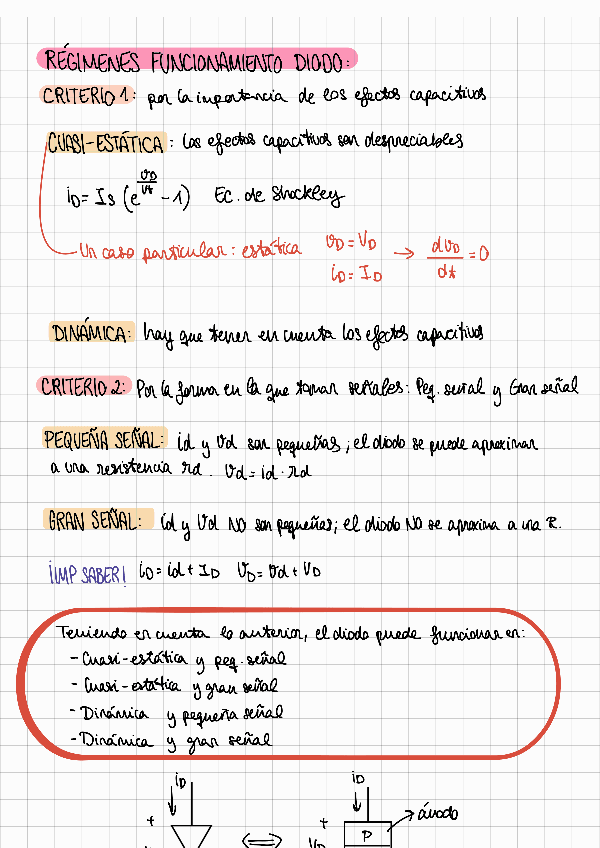 RÉGIMENES FUNCIONAMIENTO DIODO:
CRITERIO 1: por la importancia de los efectos capacitivos
CUASI-ESTÁTICA: los efectos capacitivos son despreciables
iD = Is (e^(vD/Vt) - 1) Ec. de Shockley
Un caso particular: estática vD = VD → dvD/dt = 0
iD = ID
DINÁMICA: hay que tener en cuenta los efectos capacitivos
CRITERIO 2: Por la forma en la que toman señales: Peq. señal y Gran señal
PEQUEÑA SEÑAL: id y vd son pequeñas; el diodo se puede aproximar
a una resistencia rd. vd = id · rd
GRAN SEÑAL: id y vd NO son pequeñas; el diodo NO se aproxima a una R.
¡IMP SABER! iD = id + ID vD = vd + VD
Teniendo en cuenta lo anterior, el diodo puede funcionar en:
- Cuasi-estática y peq. señal
- Cuasi-estática y gran señal
- Dinámica y pequeña señal
- Dinámica y gran señal
iD iD
+ ⇔ + P → ánodo
VD